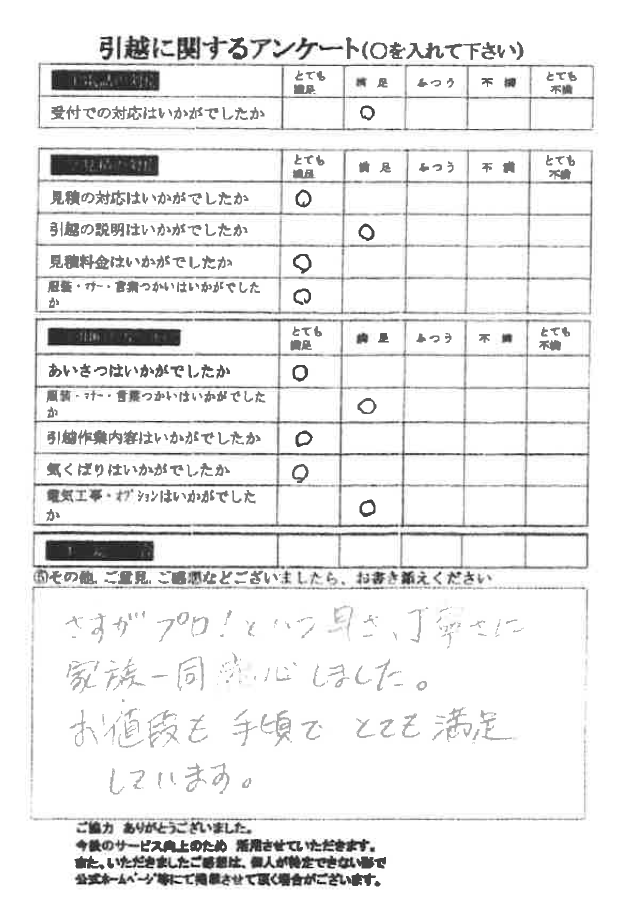 引越に関するアンケート(○を入れて下さい)
とても満足 満足 ふつう 不満 とても不満
受付での対応はいかがでしたか ○
とても満足 満足 ふつう 不満 とても不満
見積の対応はいかがでしたか ○
引越の説明はいかがでしたか ○
見積料金はいかがでしたか ○
服装・マナー・言葉つかいはいかがでしたか ○
とても満足 満足 ふつう 不満 とても不満
あいさつはいかがでしたか ○
服装・マナー・言葉つかいはいかがでしたか ○
引越作業内容はいかがでしたか ○
気くばりはいかがでしたか ○
電気工事・オプションはいかがでしたか ○
⑤その他、ご意見、ご感想などございましたら、お書き添えください
さすがプロ!という早さ、丁寧さに
家族一同感心しました。
お値段も手頃でとても満足
しています。
ご協力 ありがとうございました。
今後のサービス向上のため 活用させていただきます。
また、いただきましたご感想は、個人が特定できない形で
公式ホームページ等にて掲載させて頂く場合がございます。